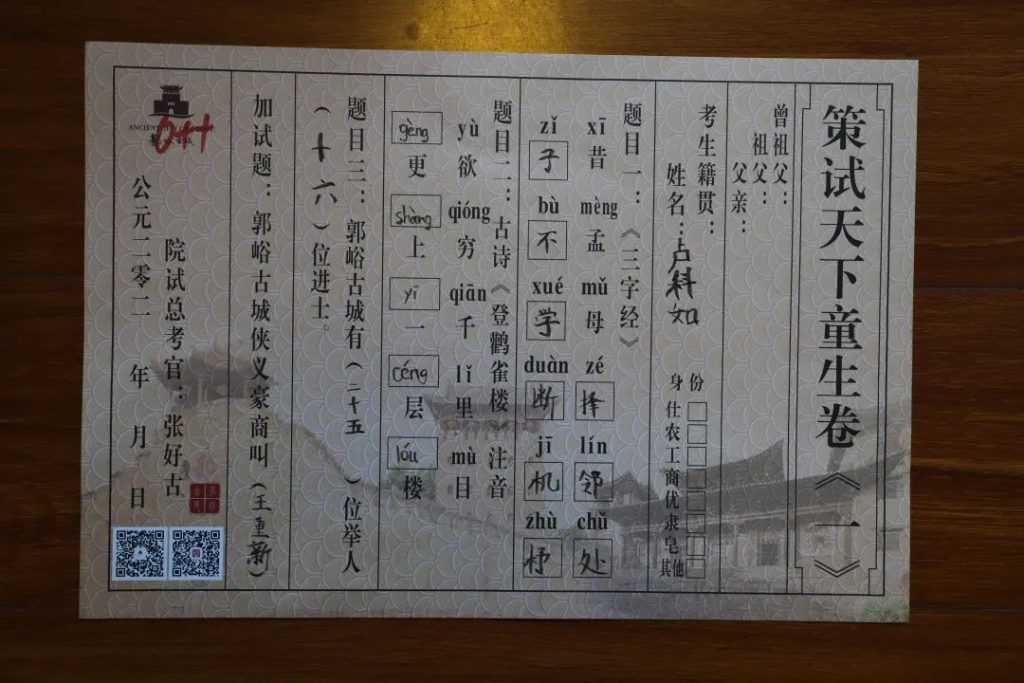 策试天下童生卷《一》
曾祖父：
祖父：
父亲：
考生籍贯：
姓名：占科如
身份
仕
农
工
商
优
隶
皂
其他
题目一：《三字经》
xī mèng mǔ zé lín chǔ
昔孟母择邻处
zǐ bù xué duàn jī zhù
子不学断机杼
题目二：古诗《登鹳雀楼》注音
yù qióng qiān lǐ mù
欲穷千里目
gèng shàng yī céng lóu
更上一层楼
题目三：郭峪古城有（二十五）位举人
（十六）位进士。
加试题：郭峪古城侠义豪商叫（王重新）
院试总考官：张好古
公元二零二 年 月 日